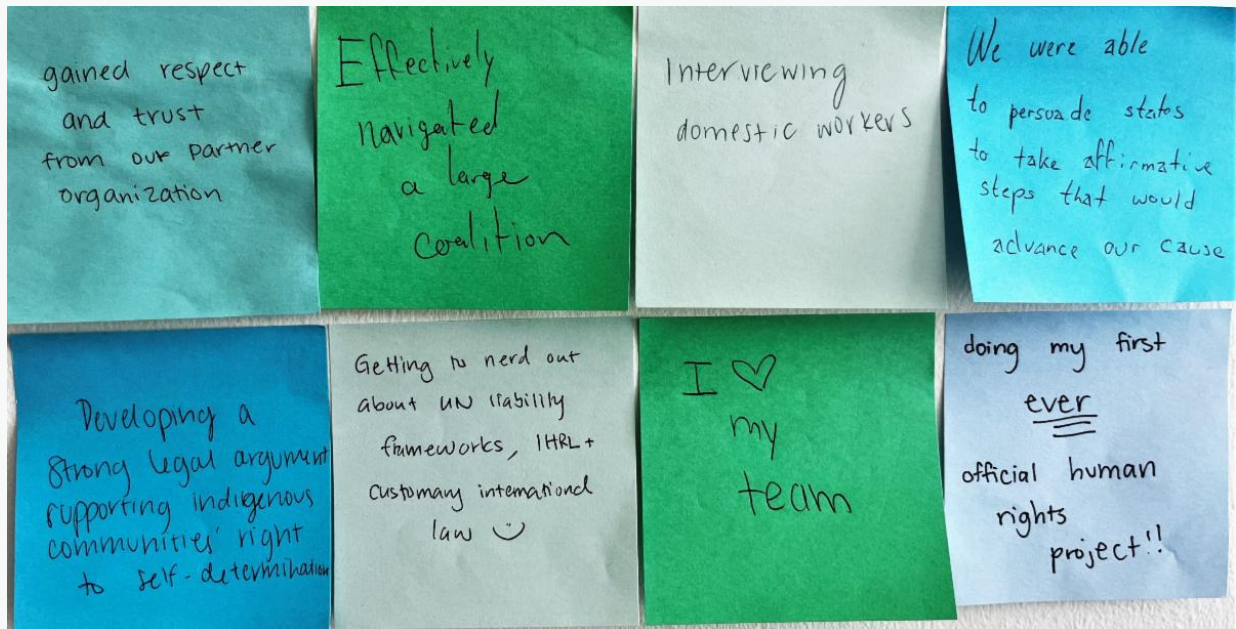 gained respect
and trust
from our partner
organization
Effectively
navigated
a large
coalition
Interviewing
domestic workers
We were able
to persuade states
to take affirmative
steps that would
advance our cause
Developing a
strong legal argument
supporting indigenous
communities' right
to self-determination
Getting to nerd out
about UN liability
frameworks, IHRL +
customary international
law ☺
I ♡
my
team
doing my first
ever
official human
rights
project!!